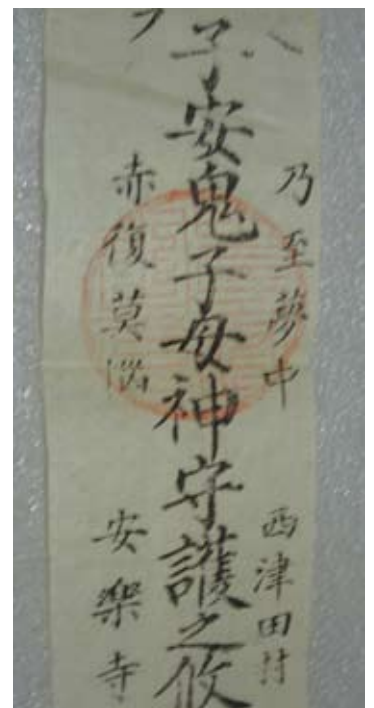 乃至夢中
西津田村
子安鬼子母神守護之攸
赤復莫惱
安樂寺